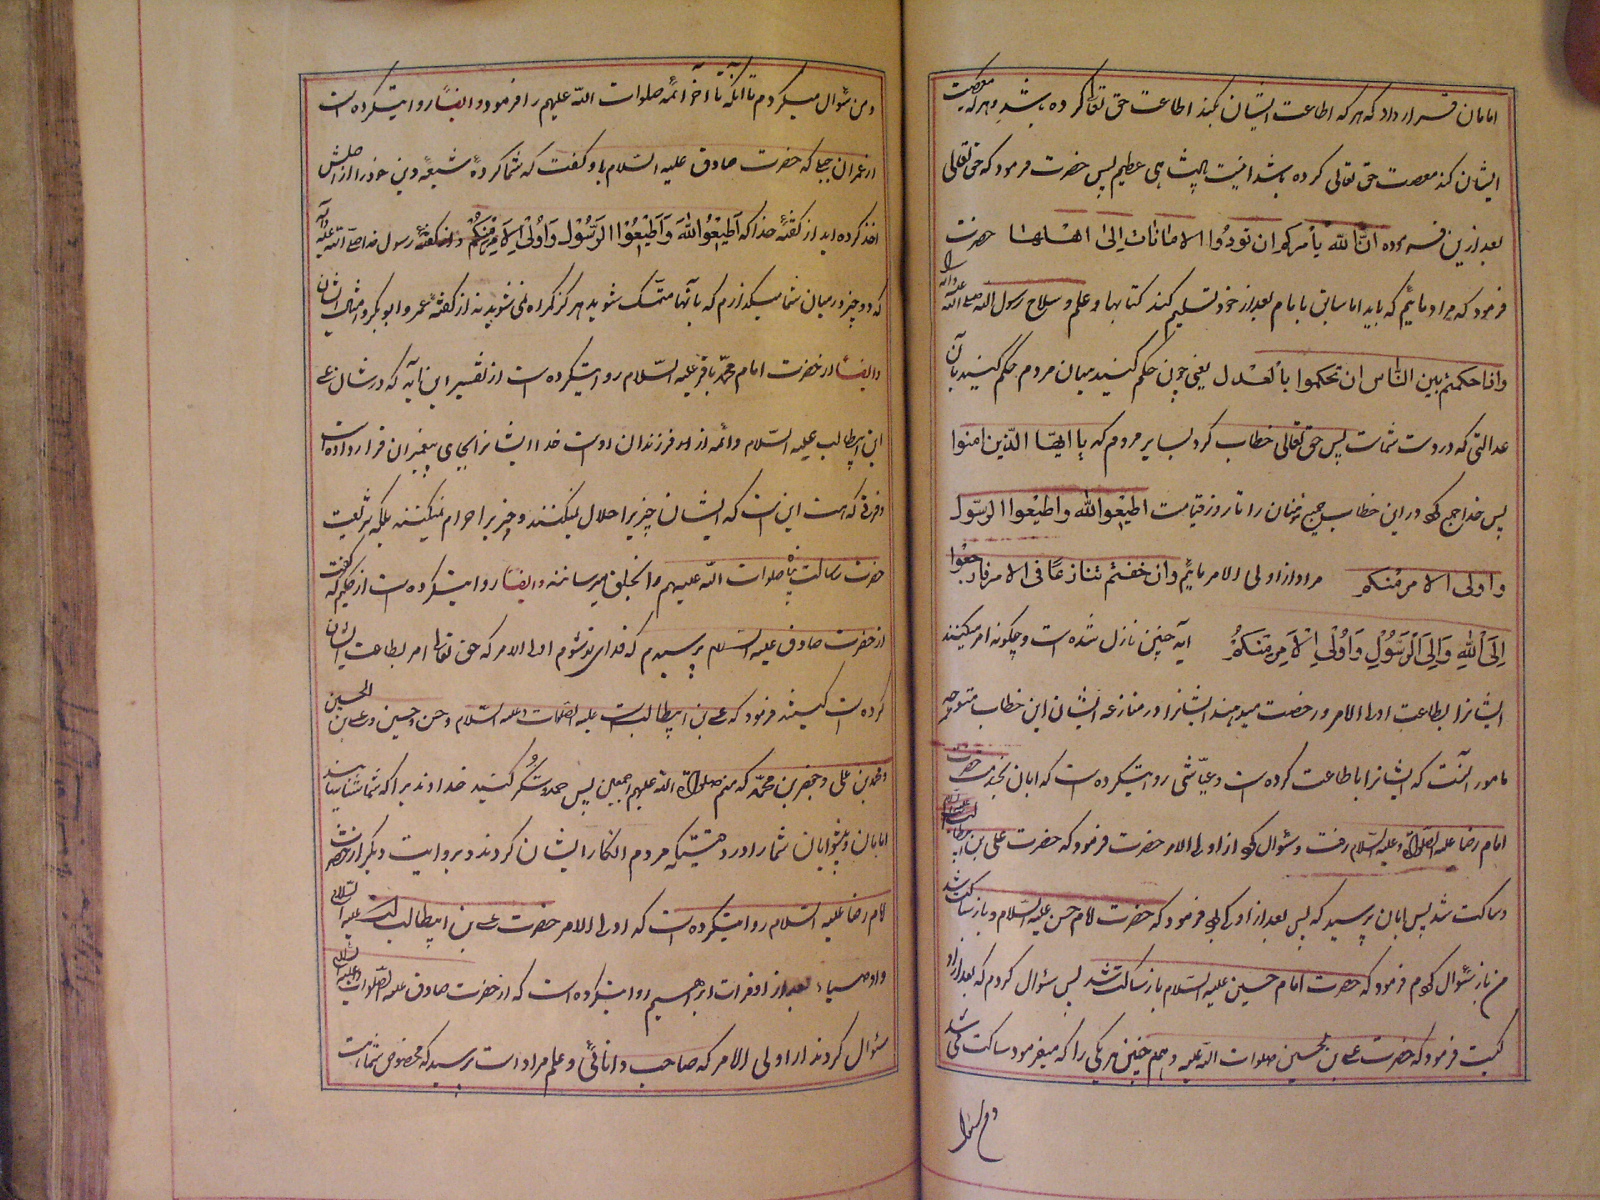 امامان قرار داد که هر که اطاعت ایشان بکند اطاعت حق تعالی کرده باشد و هر که معصیت
ایشان کند معصیت حق تعالی کرده باشد اینست پادشاهی عظیم پس حضرت فرمود که حق تعالی
بعد ازین فرموده ان الله یأمرکم ان تودوا الامانات الی اهلها حضرت
فرمود که مراد مائیم که باید امام سابق با امام بعد از خود تسلیم کند کتابها و علم و سلاح رسول الله صلی الله علیه و آله را
و اذا حکمتم بین الناس ان تحکموا بالعدل یعنی چون حکم کنید میان مردم حکم کنید بآن
عدالتی که در دست شماست پس حق تعالی خطاب کرد بسایر مردم که یا ایها الذین امنوا
پس خدا جمع کرد در این خطاب جمیع مؤمنان را تا روز قیامت اطیعوا الله و اطیعوا الرسول
و اولی الامر منکم مراد از اولی الامر مائیم و ان خفتم تنازعا فی الامر فارجعوا
اِلَی اللهِ وَاِلَی الرَّسُولِ وَاُولِی الاَمرِ مِنکُم ایه چنین نازل شده است و چگونه امر میکنند
ایشانرا بطاعت اولی الامر و رخصت میدهند ایشانرا در منازعه ایشان این خطاب متوجه
مامور آنست که ایشانرا باطاعت کرده است و عیاشی روایتکرده است که ابان بخدمت حضرت
امام رضا علیه الصلوة و علیه السلام رفت و سؤال کرد از اولی الامر حضرت فرمود که حضرت علی بن ابیطالب علیه السلام
و ساکت شد پس ابان پرسید که پس بعد از او که بود فرمود که حضرت امام حسن علیه السلام و باز ساکت شد
من باز سؤال کردم فرمود که حضرت امام حسین علیه السلام باز ساکت شد پس سؤال کردم که بعد از او
کیست فرمود که حضرت علی بن الحسین صلوات الله علیه و همچنین هر یکی را که میفرمود ساکت می شد
و من سؤال
و من سؤال میکردم تا آنکه تا آخر ائمه صلوات الله علیهم را فرمود و ایضاً روایتکرده است
از عمران حلبی که حضرت صادق علیه السلام باو گفت که شما کرده شیعه دین خود را از اصلش
اخذ کرده اید از گفته خدا که اَطِیعُوا اللهَ وَاَطِیعُوا الرَّسُولَ وَاُولِی الاَمرِ مِنکُم و از گفته رسول خدا صلی الله علیه و آله
که دو چیز در میان شما میگذارم که با آنها متمسک شوید هرگز گمراه نمی شوید نه از گفته عمر و ابوبکر و امثال ایشان
و ایضاً از حضرت امام محمد باقر علیه السلام روایتکرده است از تفسیر این ایه که در شان علی
ابن ابیطالب علیه السلام و ائمه از فرزندان اوست خدا ایشانرا بجای پیغمبران قرار داده است
و فرقی که هست این است که ایشان چیزیرا حلال نمیکنند و چیزیرا حرام نمیکنند بلکه شریعت
حضرت رسالت پناه صلوات الله علیهم را بخلق میرسانند و ایضاً روایتکرده است از حکیم که گفت
از حضرت صادق علیه السلام پرسیدم که فدای تو شوم اولی الامر که حق تعالی امر بطاعت ایشان
کرده است کیستند فرمود که علی بن ابیطالب است علیه السلام و حسن و حسین و علی بن الحسین
و محمد بن علی و جعفر بن محمد که منم صلوات الله علیهم اجمعین پس حمد و شکر کنید خداوندیرا که شناسانید بشما
امامان و پیشوایان شما را در وقتیکه مردم انکار ایشان کردند و بروایت دیگر از حضرت
امام رضا علیه السلام روایتکرده است که اولی الامر حضرت علی بن ابیطالب است علیه السلام
و اوصیاء بعد از او فرات ابراهیم روایتکرده است که از حضرت صادق علیه الصلوات و علیه السلام
سؤال کردند از اولی الامر که صاحب دانائی و علم مراد است پرسید که مخصوص شماست